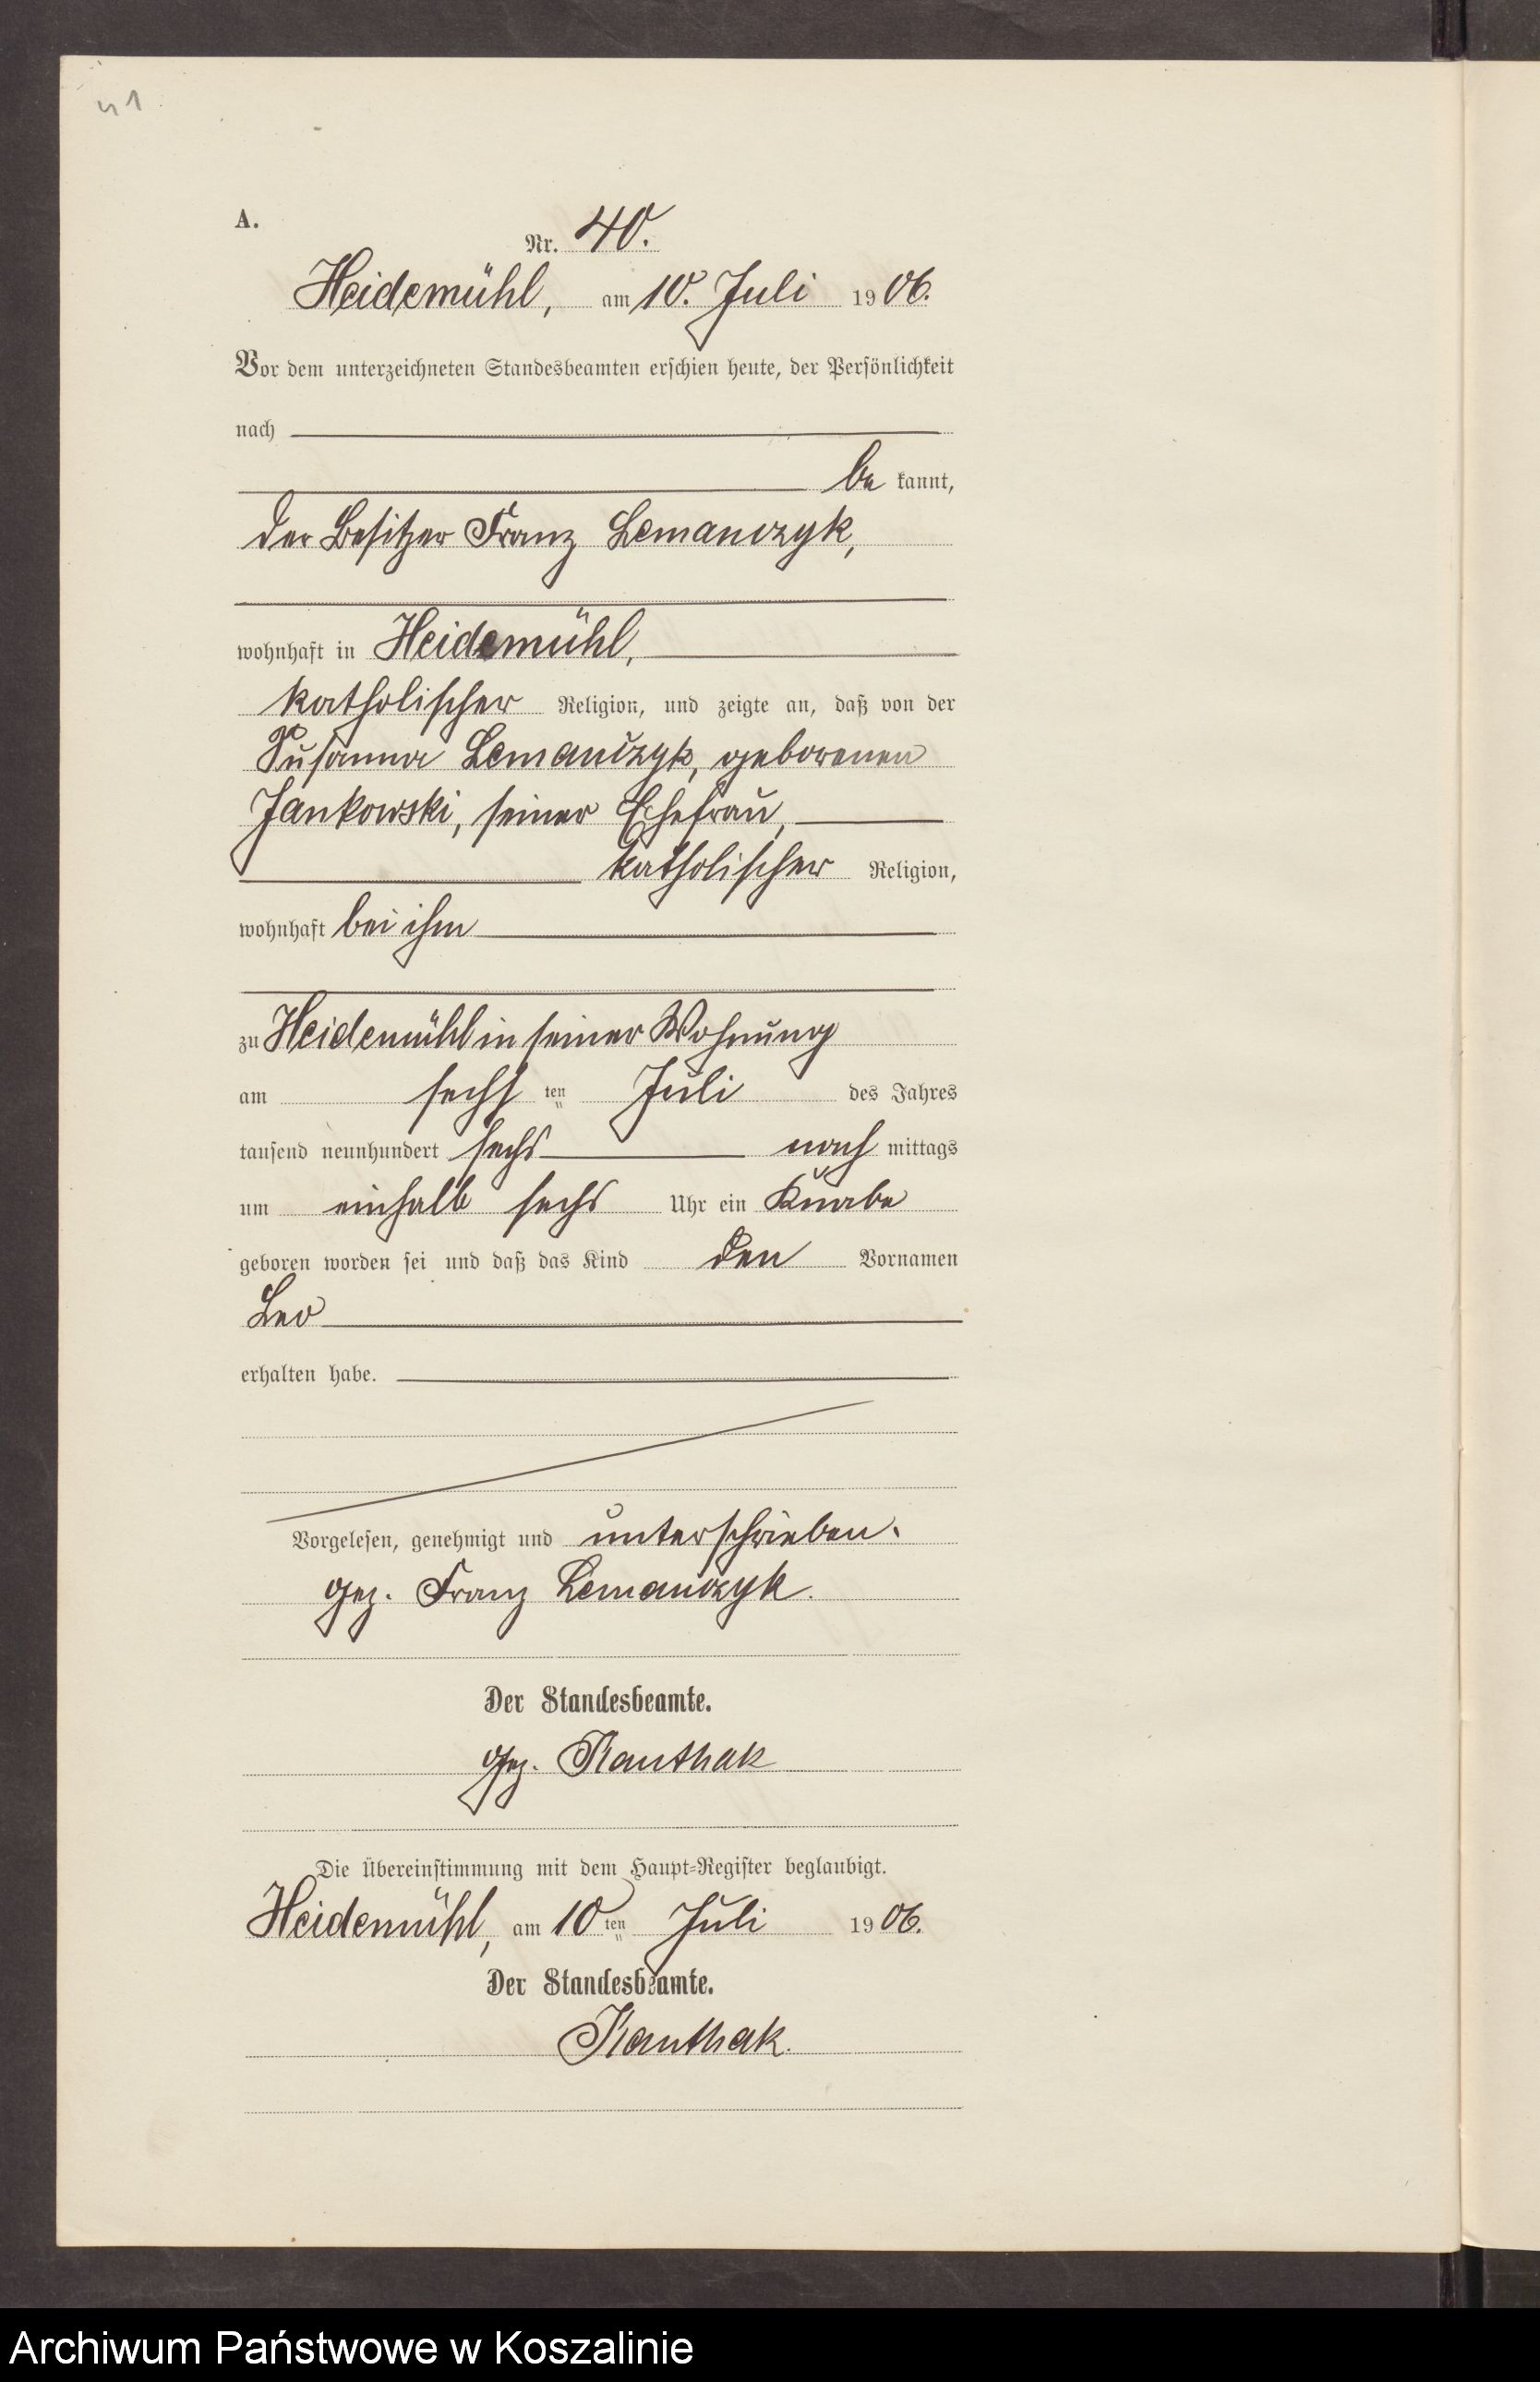 41
A.
Nr. 40.
Heidemühl, am 10. Juli 1906.
Vor dem unterzeichneten Standesbeamten erschien heute, der Persönlichkeit
nach
be kannt,
der Besitzer Franz Lemanczyk,
wohnhaft in Heidemühl,
katholischer Religion, und zeigte an, daß von der
Susanna Lemanczyk, geborenen
Jankowski, seiner Ehefrau,
katholischer Religion,
wohnhaft bei ihm
zu Heidemühl in seiner Wohnung
am sechs ten Juli des Jahres
tausend neunhundert sechs nach mittags
um einhalb sechs Uhr ein Knabe
geboren worden sei und daß das Kind den Vornamen
Leo
erhalten habe.
Vorgelesen, genehmigt und unterschrieben.
gez. Franz Lemanczyk.
Der Standesbeamte.
gez. Kanthak
Die Übereinstimmung mit dem Haupt-Register beglaubigt.
Heidemühl, am 10 ten Juli 1906.
Der Standesbeamte.
Kanthak.
Archiwum Państwowe w Koszalinie